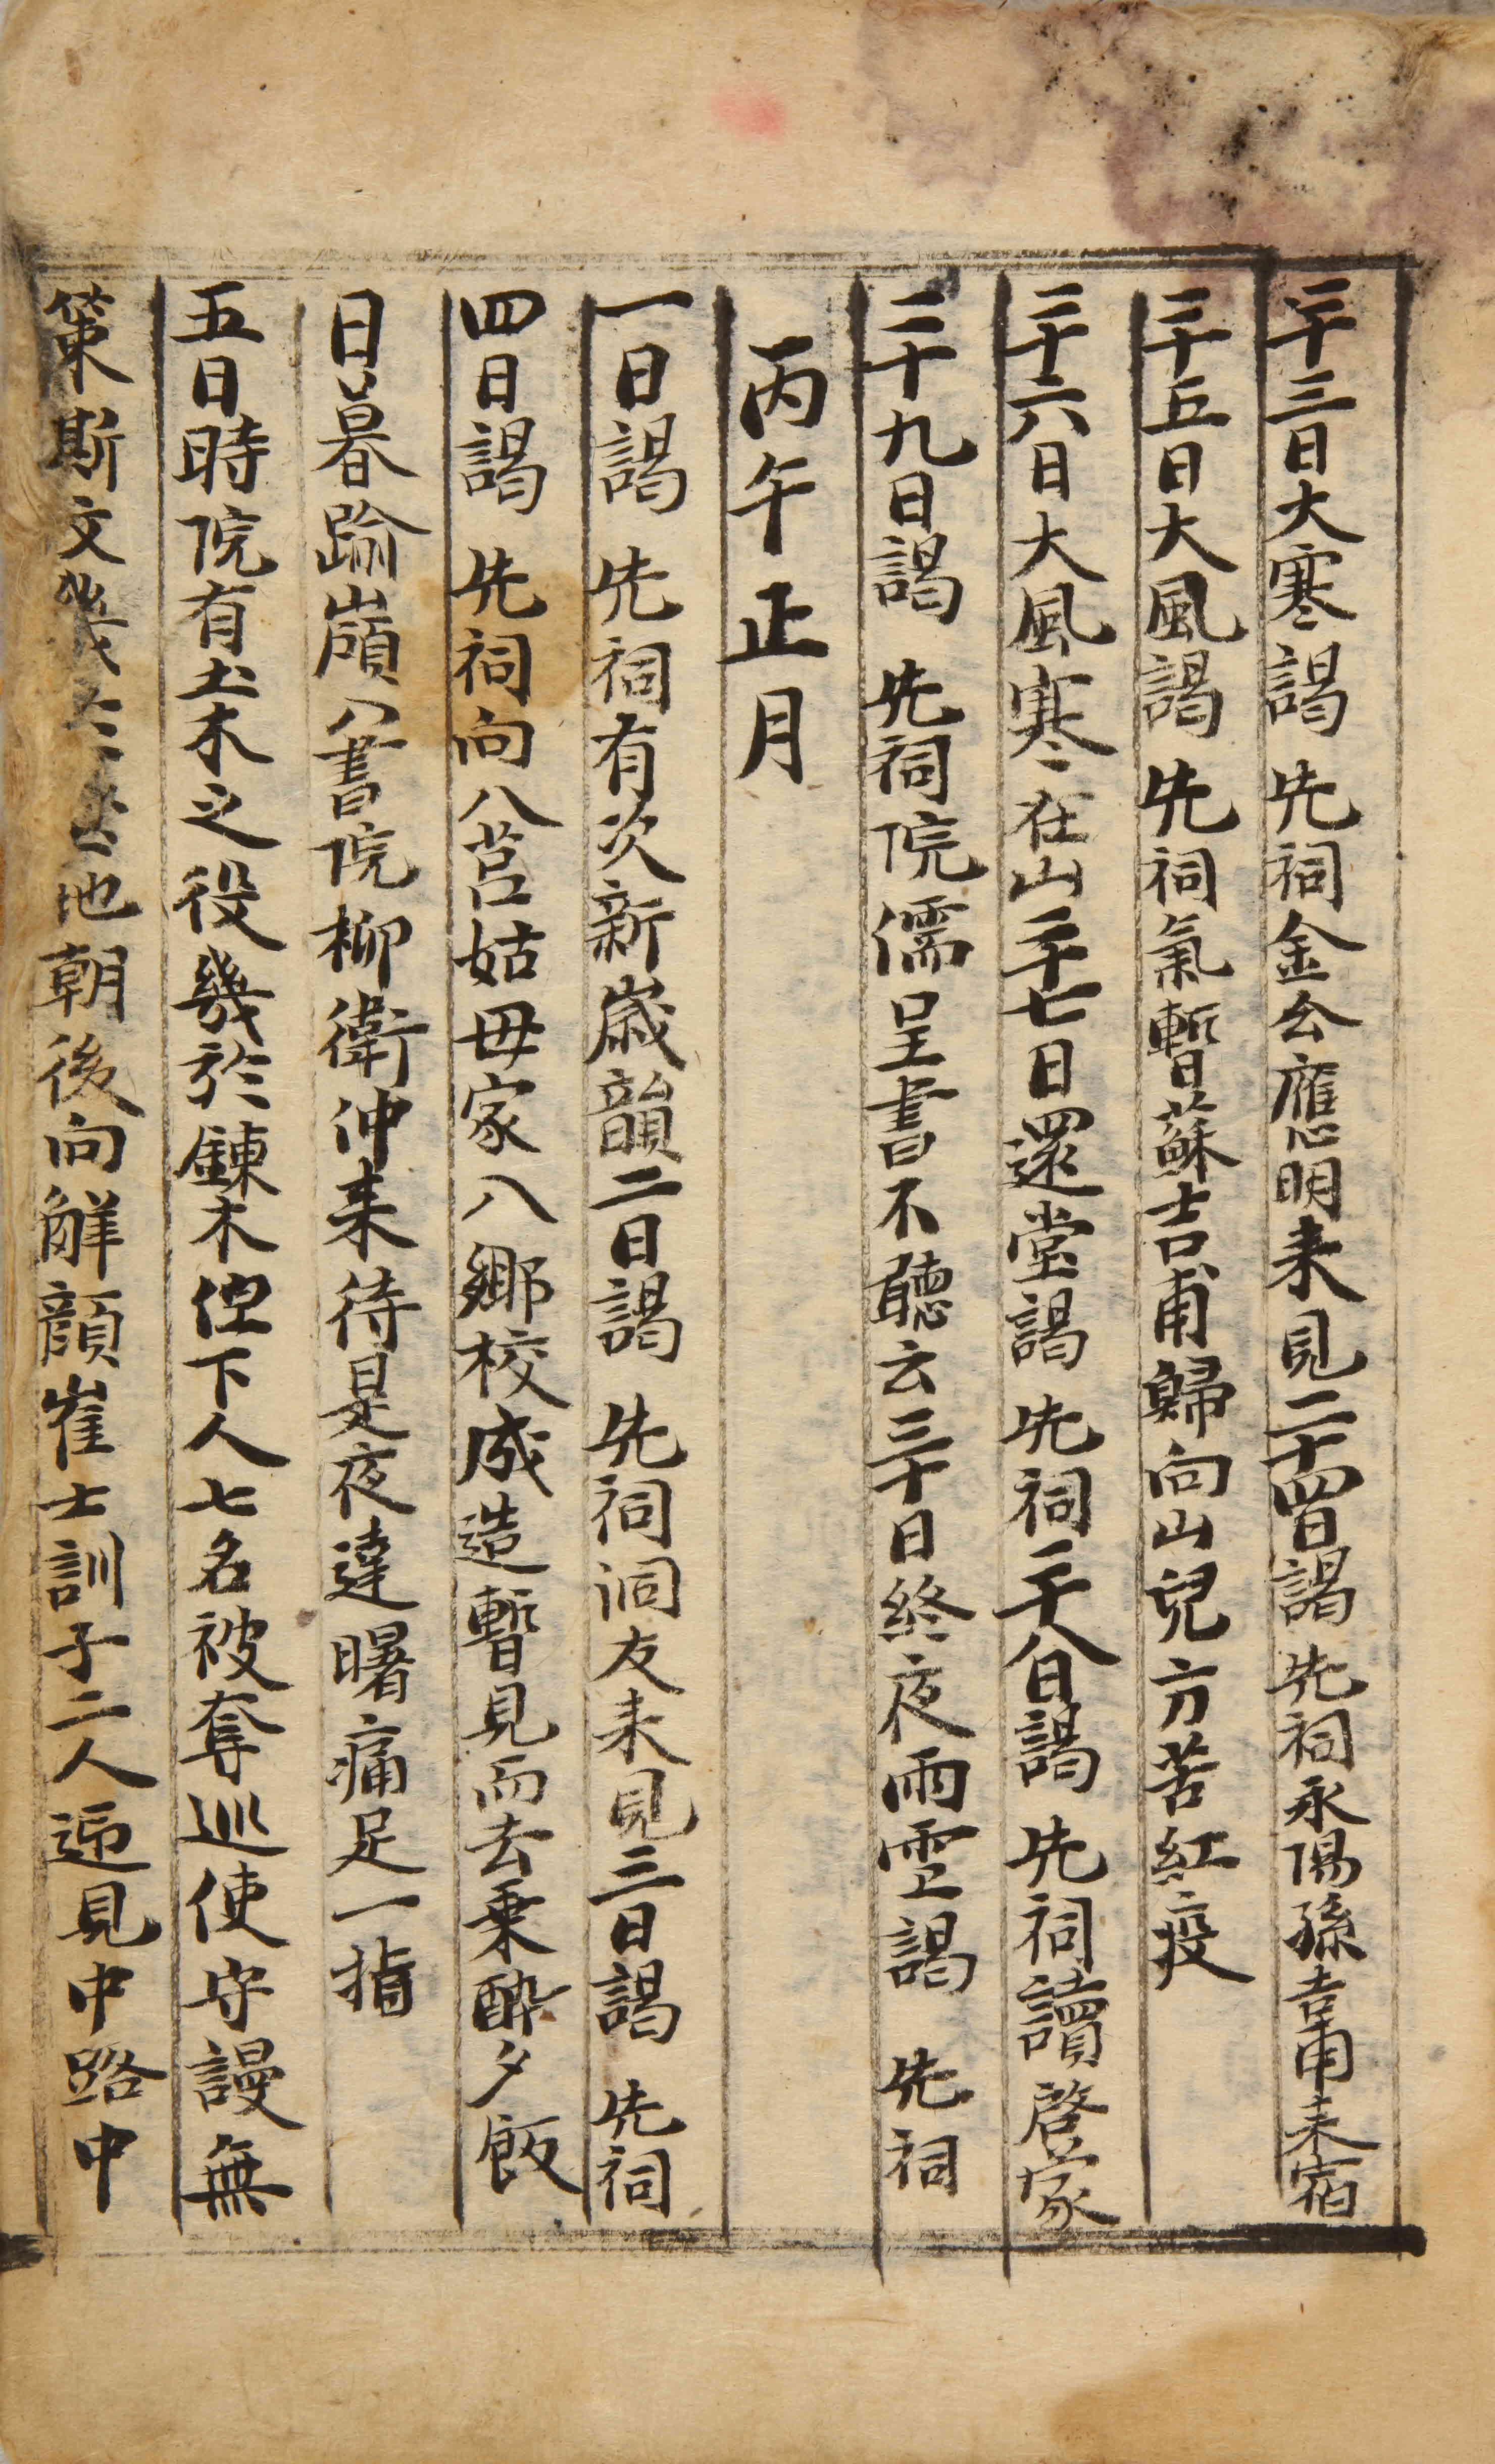 二十三日大寒謁 先祠金公應明来見二十四日謁 先祠永陽孫吉甫来宿
二十五日大風謁 先祠氣暫蘇吉甫歸向山兒方苦紅疫
二十六日大風寒在山二十七日還堂謁 先祠二十八日謁 先祠讀啓蒙
二十九日謁 先祠院儒呈書不聽云三十日終夜雨雪謁 先祠
丙午正月
一日謁 先祠有次新歲韻二日謁 先祠洞友来見三日謁 先祠
四日謁 先祠向八莒姑母家入鄉校成造暫見而去乗酔夕飯
日暮踰嶺入書院柳衛仲来待是夜達曙痛足一指
五日時院有土木之役幾於鍊木但下人七名被奪巡使守謾無
策斯文幾於地朝後向解顔崔士訓子二人逓見中路中